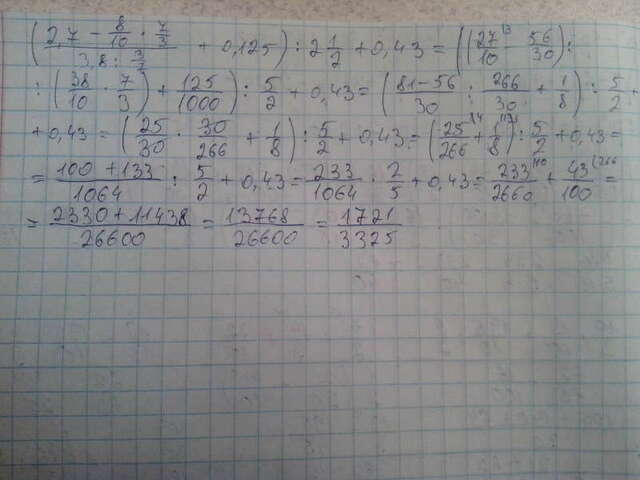 ((2,7 - 8/10 · 7/3)/(3,8 : 3/7) + 0,125) : 2 1/2 + 0,43 = ((27/10 - 56/30) :
: (38/10 · 7/3) + 125/1000) : 5/2 + 0,43 = ((81-56)/30 : 266/30 + 1/8) : 5/2 +
+ 0,43 = (25/30 · 30/266 + 1/8) : 5/2 + 0,43 = (25/266 + 1/8) : 5/2 + 0,43 =
= (100 + 133)/1064 : 5/2 + 0,43 = 233/1064 · 2/5 + 0,43 = 233/2660 + 43/100 =
= (2330 + 11438)/26600 = 13768/26600 = 1721/3325